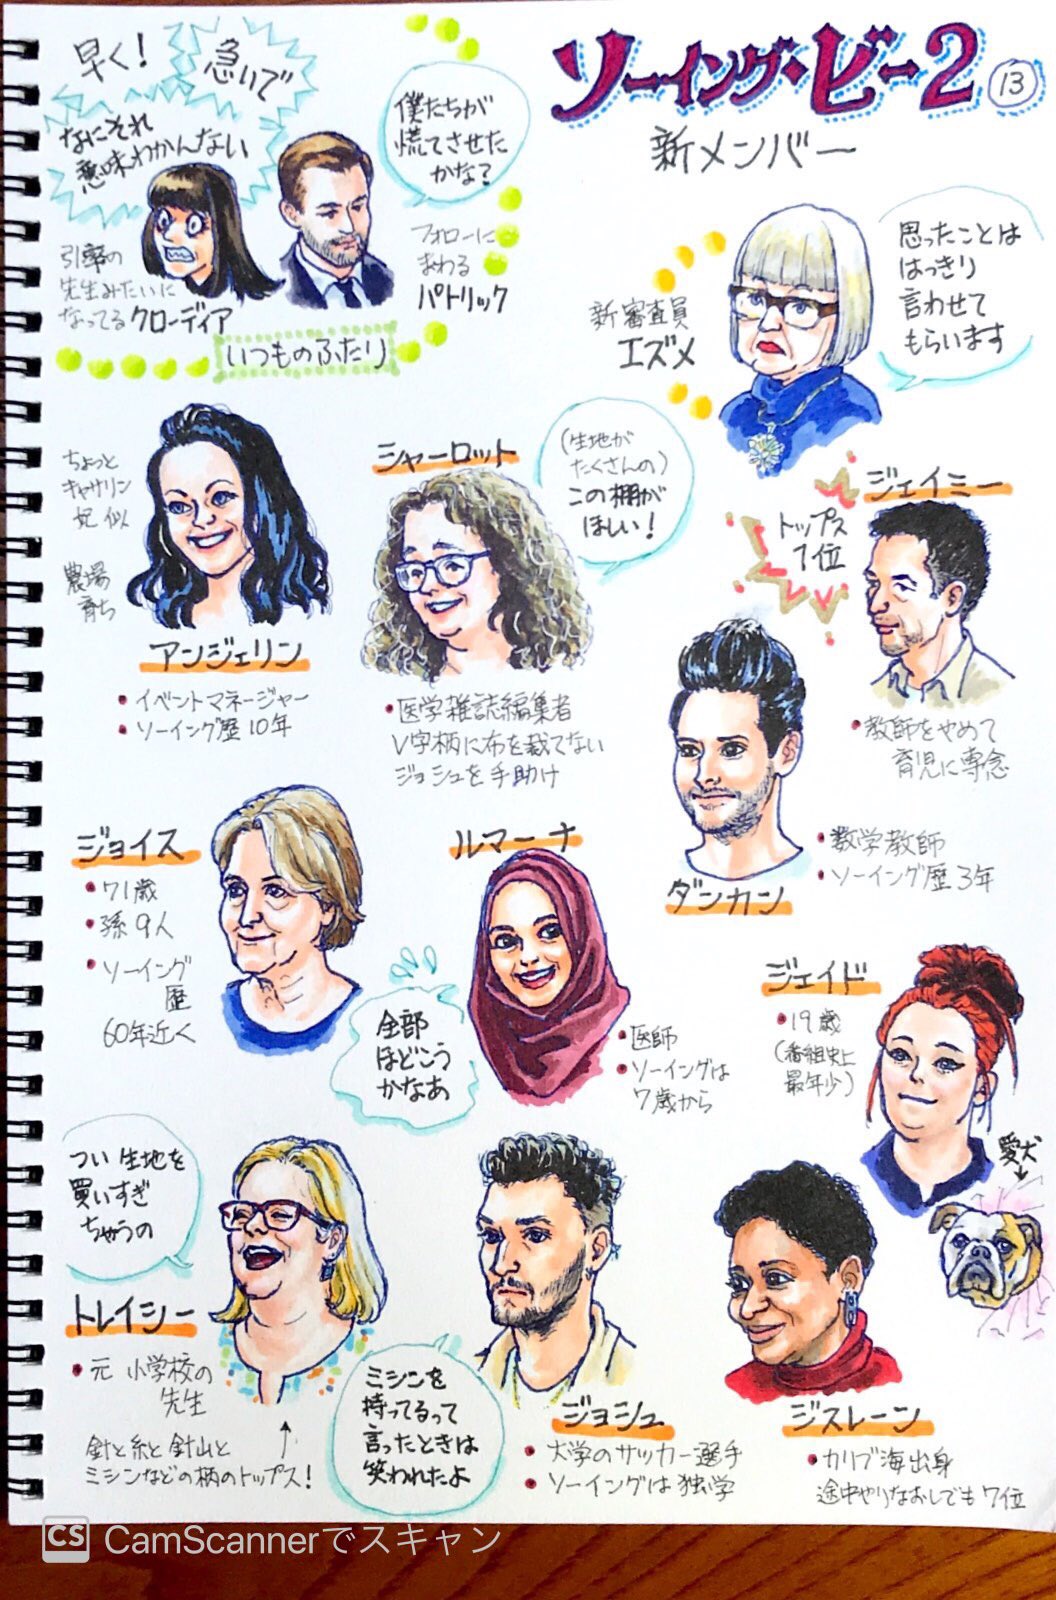 ソーイング・ビー2
13
新メンバー
早く!
急いで
なにそれ
意味わかんない
僕たちが
慌てさせた
かな?
引率の
先生みたいに
なってるクローディア
フォローに
まわる
パトリック
いつものふたり
新審査員
エズメ
思ったことは
はっきり
言わせて
もらいます
ちょっと
キャサリン
妃似
農場
育ち
アンジェリン
・イベントマネージャー
・ソーイング歴10年
シャーロット
(生地が
たくさんの)
この棚が
ほしい!
・医学雑誌編集者
V字柄に布を裁てない
ジョシュを手助け
ジェイミー
トップス
1位
・教師をやめて
育児に専念
ダンカン
・数学教師
・ソーイング歴3年
ジョイス
・71歳
・孫9人
・ソーイング
歴
60年近く
ルマーナ
全部
ほどこう
かなあ
・医師
・ソーイングは
7歳から
ジェイド
・19歳
(番組史上
最年少)
愛犬
つい生地を
買いすぎ
ちゃうの
トレイシー
・元 小学校の
先生
針と糸と針山と
ミシンなどの柄のトップス!
ミシンを
持ってるって
言ったときは
笑われたよ
ジョシュ
・大学のサッカー選手
・ソーイングは独学
ジスレーン
・カリブ海出身
途中やりなおしでも7位
CS CamScannerでスキャン